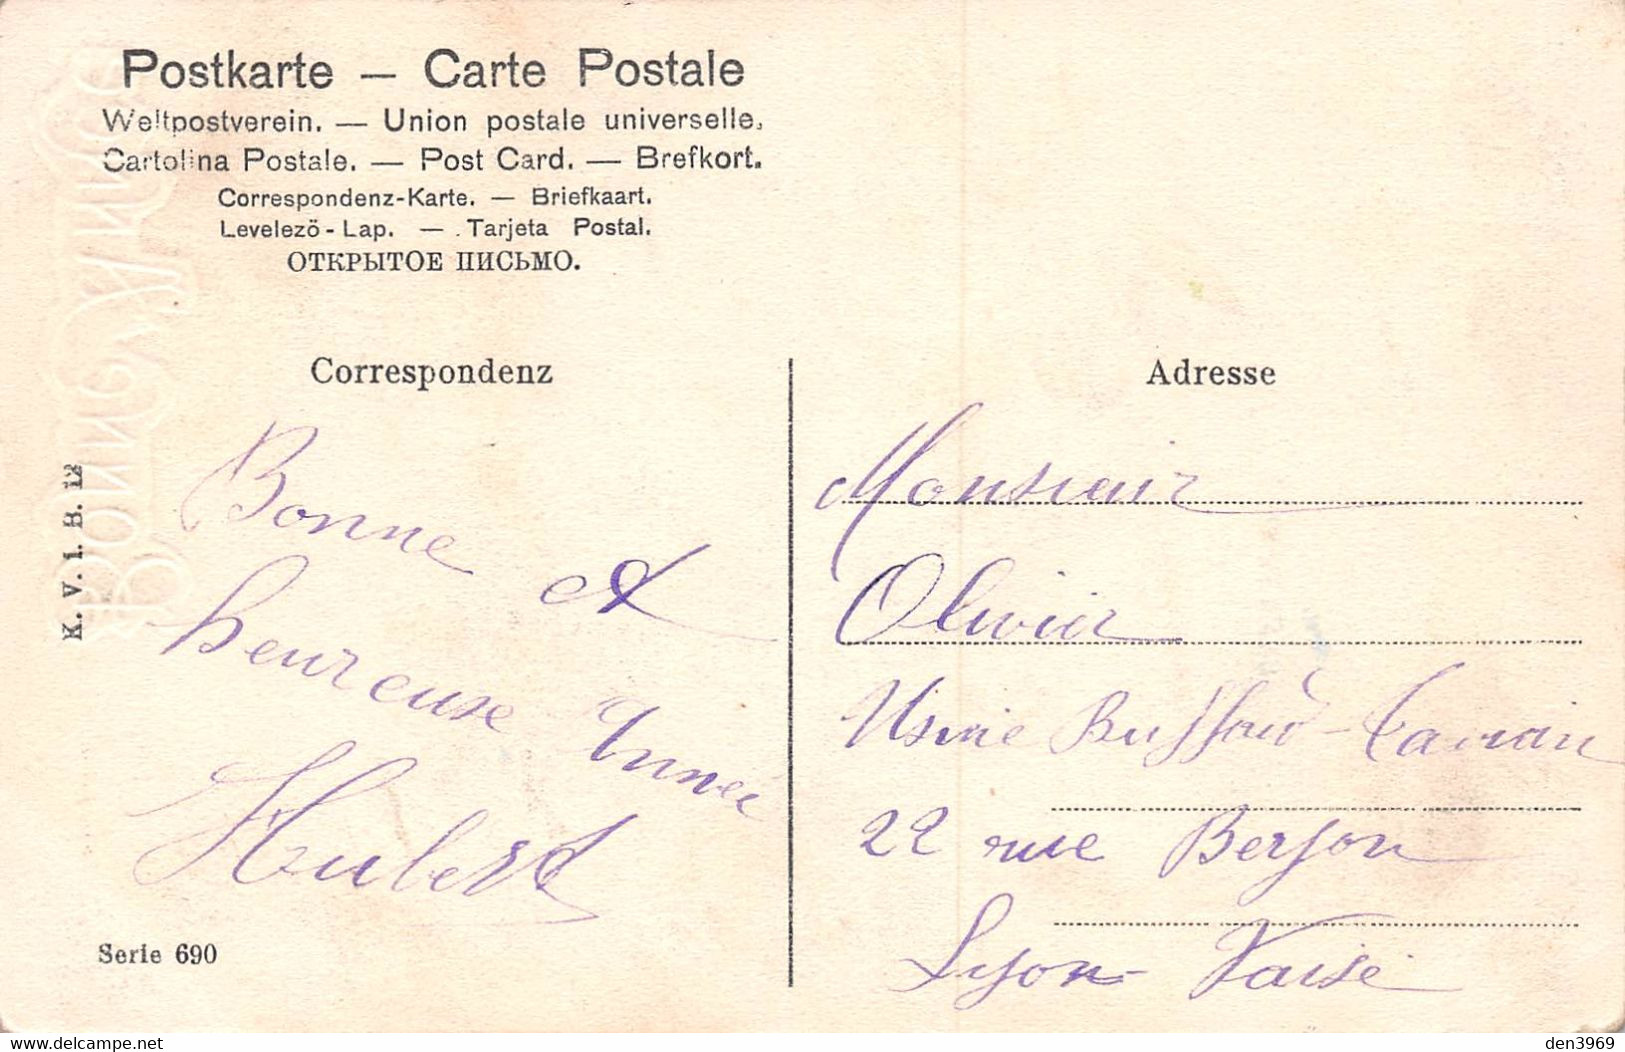 Postkarte — Carte Postale
Weltpostverein. — Union postale universelle.
Cartolina Postale. — Post Card. — Brefkort.
Correspondenz-Karte. — Briefkaart.
Levelező - Lap. — Tarjeta Postal.
ОТКРЫТОЕ ПИСЬМО.
Correspondenz
Bonne et
heureuse Année
Hubert
K. V. i. B. 12
Serie 690
Adresse
Monsieur
Olivier
Usine
22 rue Berjon
Lyon - Vaise
den3969